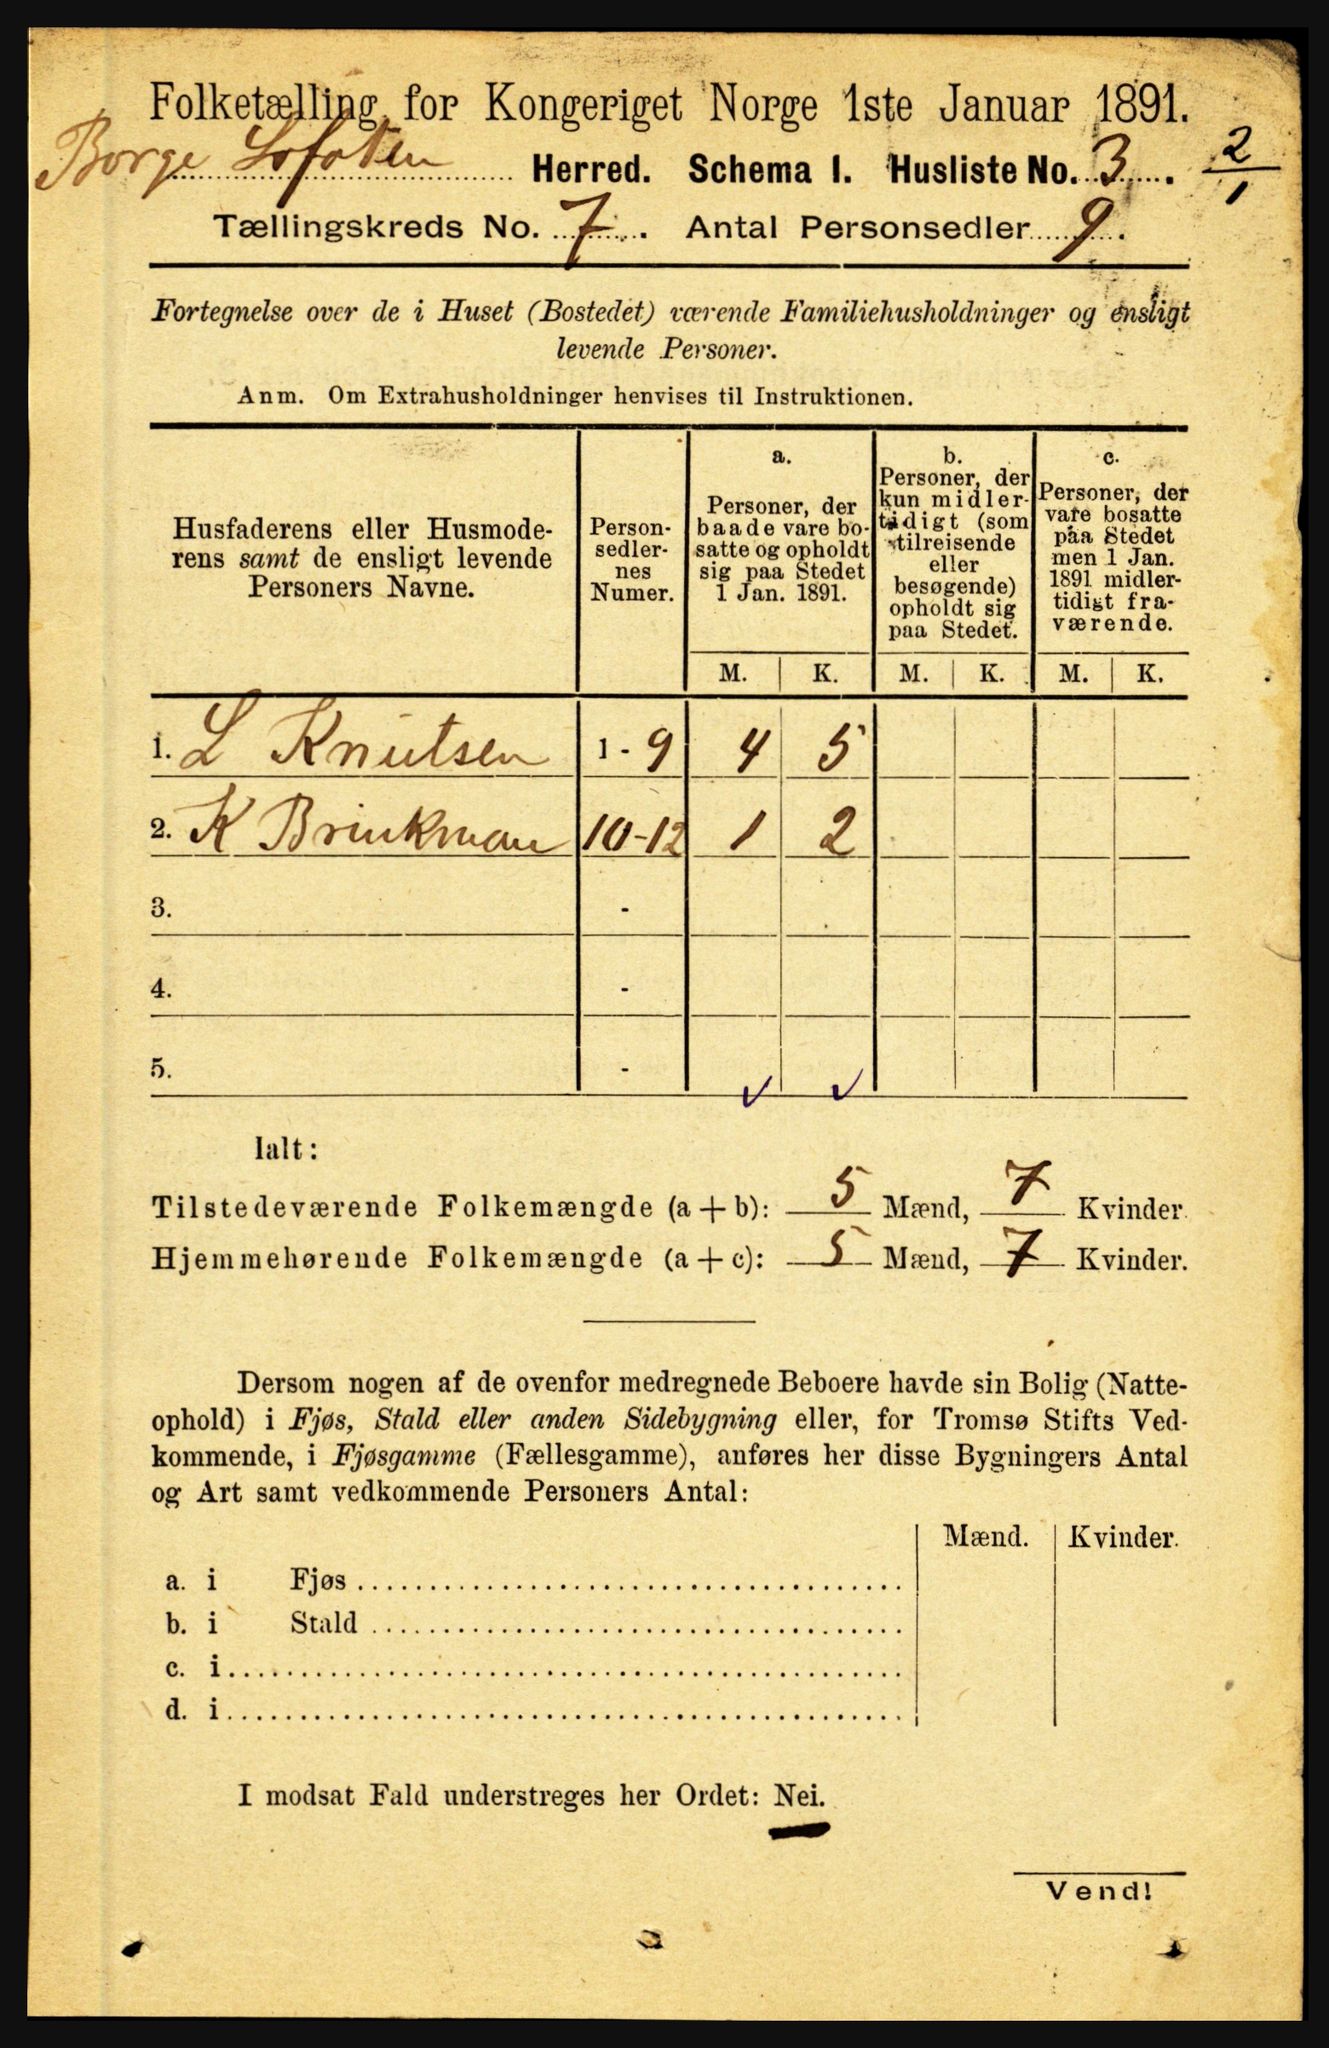 Folketælling for Kongeriget Norge 1ste Januar 1891.
Borge Lofoten Herred. Schema I. Husliste No. 3. 2/1
Tællingskreds No. 7. Antal Personsedler 9.
Fortegnelse over de i Huset (Bostedet) værende Familiehusholdninger og ensligt
levende Personer.
Anm. Om Extrahusholdninger henvises til Instruktionen.
Husfaderens eller Husmode-
rens samt de ensligt levende
Personers Navne.
Person-
sedler-
nes
Numer.
a.
Personer, der
baade vare bo-
satte og opholdt
sig paa Stedet
1 Jan. 1891.
b.
Personer, der
kun midler-
tidigt (som
tilreisende
eller
besøgende)
opholdt sig
paa Stedet.
c.
Personer, der
vare bosatte
paa Stedet
men 1 Jan.
1891 midler-
tidigt fra-
værende.
M. K. M. K. M. K.
1. L Knutsen 1 - 9 4 5
2. K Brinkman 10-12 1 2
3. -
4. -
5. -
Ialt:
Tilstedeværende Folkemængde (a + b): 5 Mænd, 7 Kvinder.
Hjemmehørende Folkemængde (a + c): 5 Mænd, 7 Kvinder.
Dersom nogen af de ovenfor medregnede Beboere havde sin Bolig (Natte-
ophold) i Fjøs, Stald eller anden Sidebygning eller, for Tromsø Stifts Ved-
kommende, i Fjøsgamme (Fællesgamme), anføres her disse Bygningers Antal
og Art samt vedkommende Personers Antal:
Mænd. Kvinder.
a. i Fjøs
b. i Stald
c. i
d. i
I modsat Fald understreges her Ordet: Nei.
Vend!